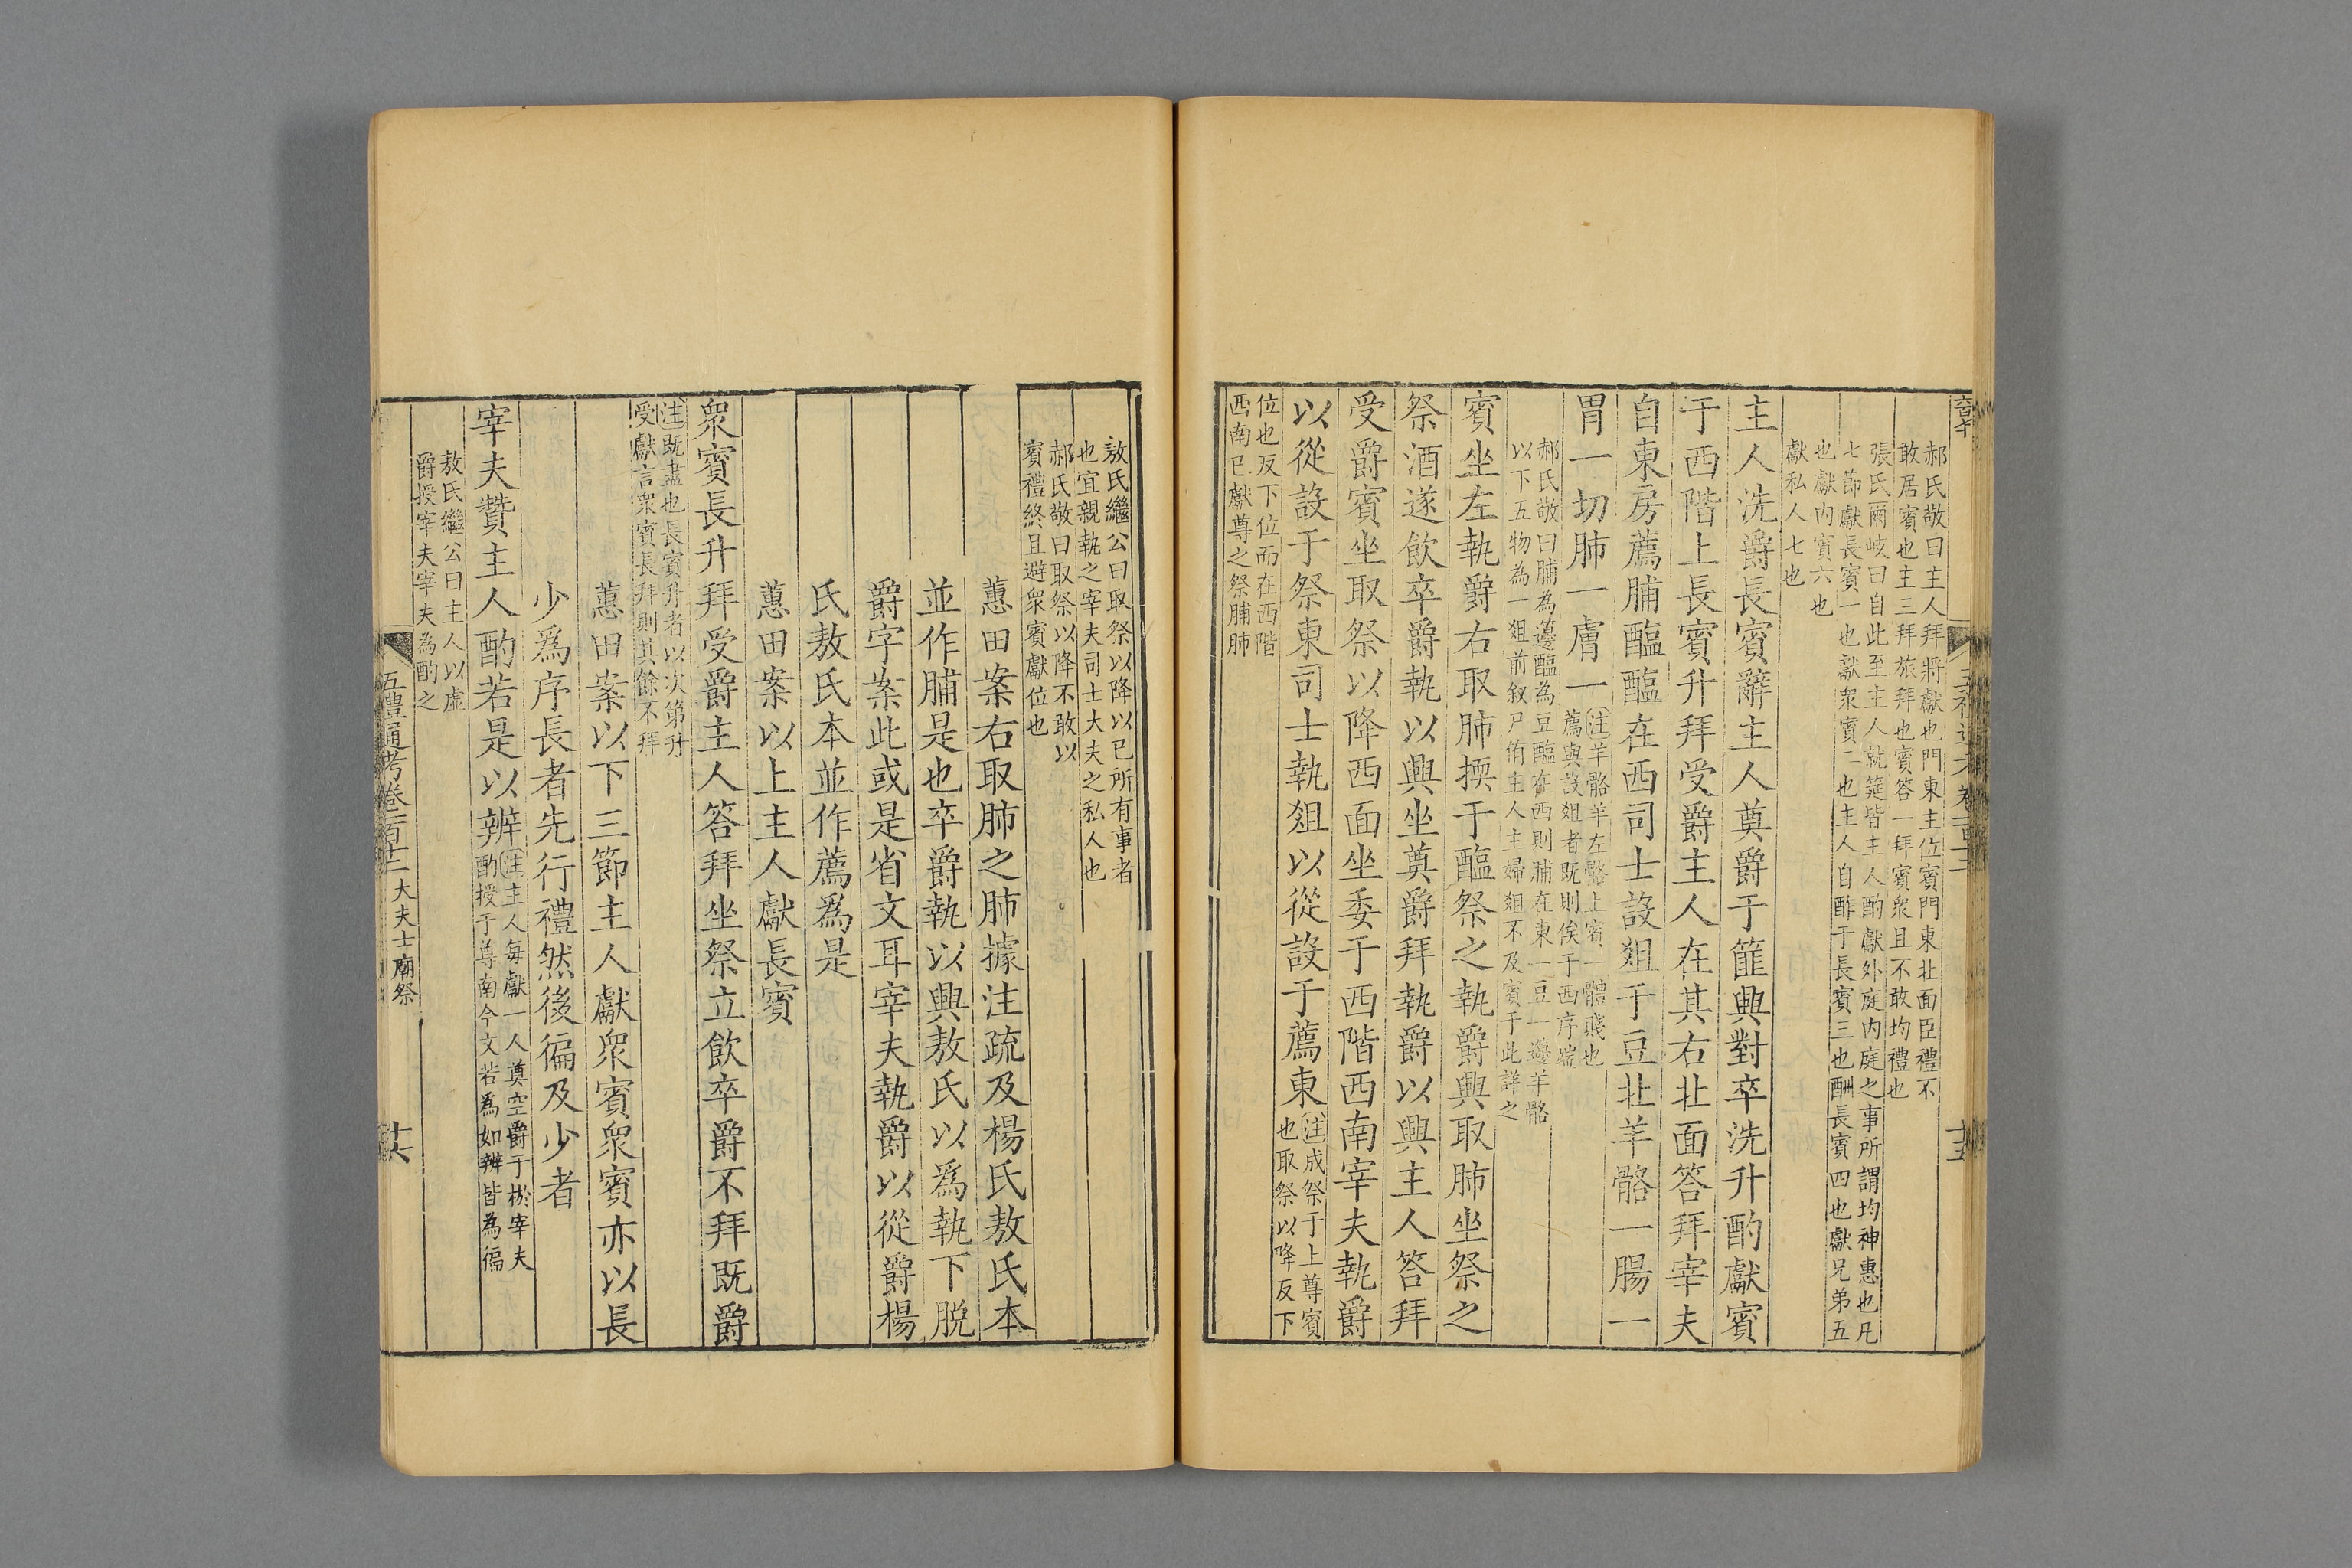 郝氏敬曰主人拜將獻也門東主位賓門東北面臣禮不
敢居賓也主三拜旅拜也賓答一拜賓衆且不敢均禮也
張氏爾岐曰自此至主人就筵皆主人酌獻外庭內庭之事所謂均神惠也凡
七節獻長賓一也獻衆賓二也主人自酢于長賓三也酬長賓四也獻兄弟五
也獻內賓六也
獻私人七也
主人洗爵長賓辭主人奠爵于篚興對卒洗升酌獻賓
于西階上長賓升拜受爵主人在其右北面答拜宰夫
自東房薦脯醢醢在西司士設俎于豆北羊骼一腸一
胃一切肺一膚一
注羊骼羊左骼上賓一體賤也
薦與設俎者既則俟于西序端
郝氏敬曰脯為籩醢為豆醢在西則脯在東一豆一籩羊骼
以下五物為一俎前叙尸侑主人主婦俎不及賓于此詳之
賓坐左執爵右取肺擩于醢祭之執爵興取肺坐祭之
祭酒遂飲卒爵執以興坐奠爵拜執爵以興主人答拜
受爵賓坐取祭以降西面坐委于西階西南宰夫執爵
以從設于祭東司士執俎以從設于薦東
注成祭于上尊賓
也取祭以降反下
位也反下位而在西階
西南已獻尊之祭脯肺
敖氏繼公曰取祭以降以已所有事者
也宜親執之宰夫司士大夫之私人也
郝氏敬曰取祭以降不敢以
賓禮終且避衆賓獻位也
蕙田案右取肺之肺據注疏及楊氏敖氏本
並作脯是也卒爵執以興敖氏以為執下脫
爵字案此或是省文耳宰夫執爵以從爵楊
氏敖氏本並作薦為是
蕙田案以上主人獻長賓
衆賓長升拜受爵主人答拜坐祭立飲卒爵不拜既爵
注既盡也長賓升者以次第升
受獻言衆賓長拜則其餘不拜
蕙田案以下三節主人獻衆賓衆賓亦以長
少為序長者先行禮然後徧及少者
宰夫贊主人酌若是以辨
注主人每獻一人奠空爵于棜宰夫
酌授于尊南今文若為如辨皆為徧
敖氏繼公曰主人以虛
爵授宰夫宰夫為酌之
五禮通考卷一百十二 大夫士廟祭
十六